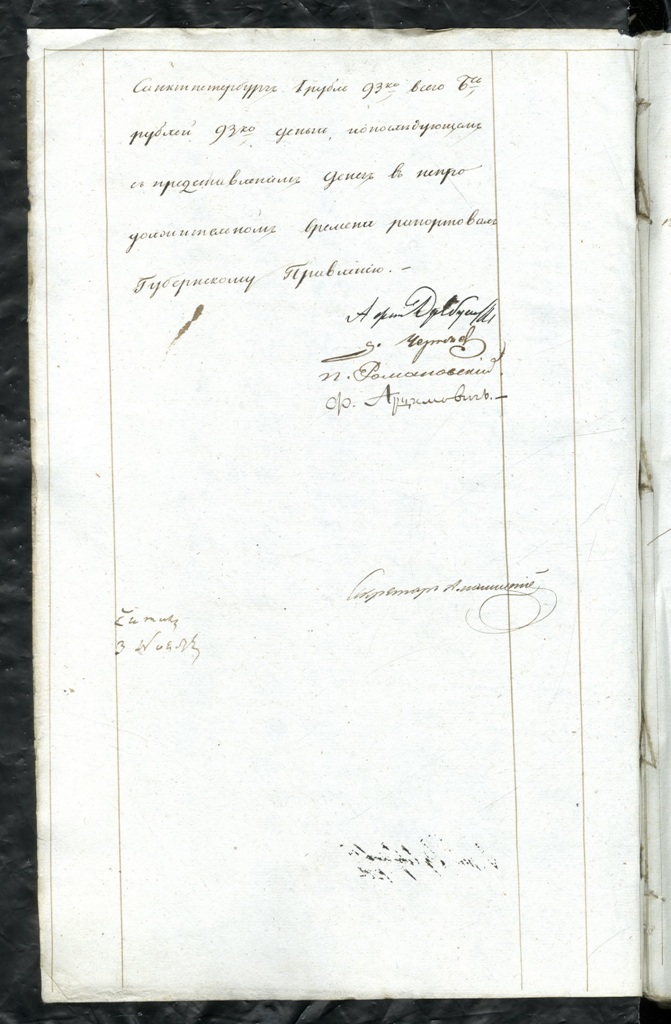 Санктпетербургъ 1 рубль 93 ко всего 6ть
рублей 93 ко деньги, ипоследующемъ
съ представлениемъ денегъ въ непро
должительномъ времени рапортовалъ
Губернскому Правлению. —
Черто
П. Романовский
Ф. Арцимовичь. —
Секретарь
Читалъ
3